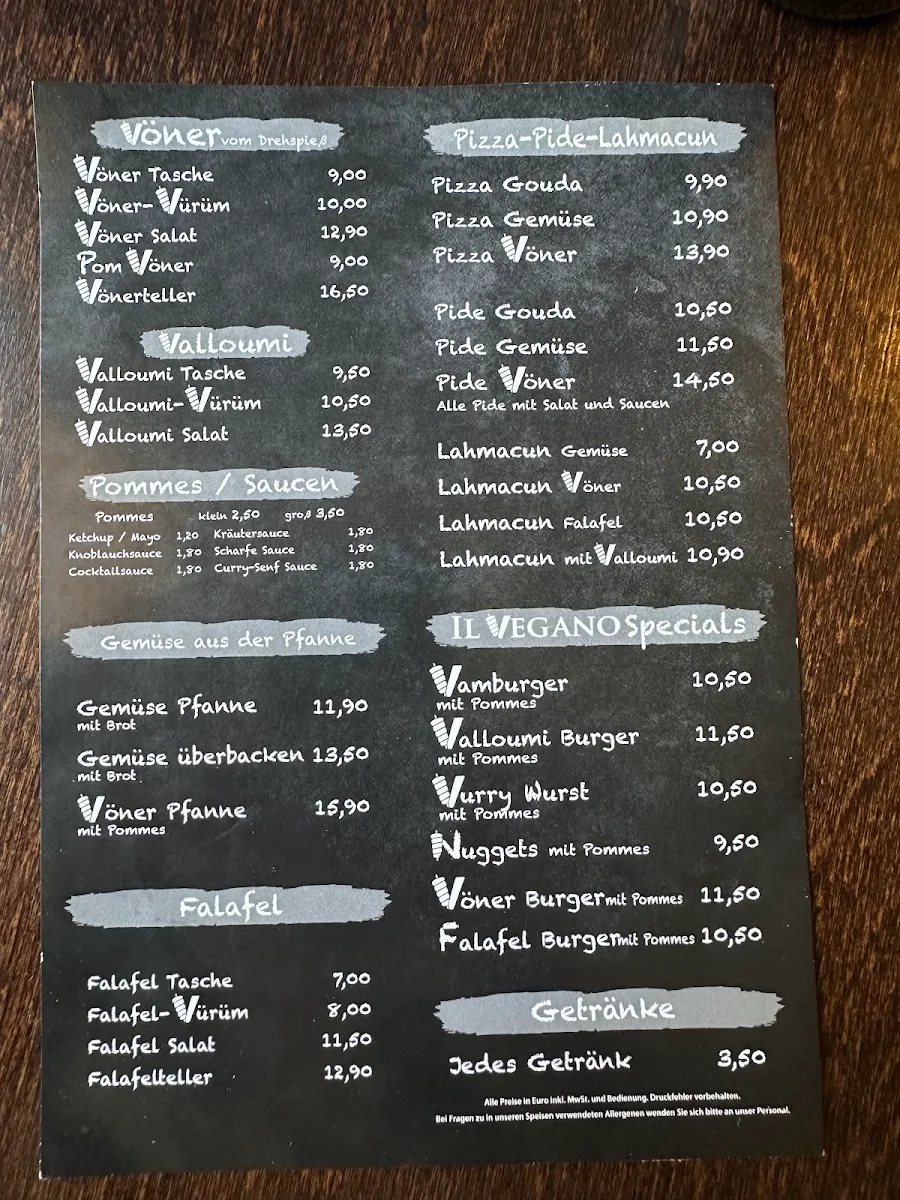 Vöner vom Drehspieß
Vöner Tasche 9,00
Vöner-Vürüm 10,00
Vöner Salat 12,90
Pom Vöner 9,00
Vönerteller 16,50
Valloumi
Valloumi Tasche 9,50
Valloumi-Vürüm 10,50
Valloumi Salat 13,50
Pommes / Saucen
Pommes klein 2,50 groß 3,50
Ketchup / Mayo 1,20 Kräutersauce 1,80
Knoblauchsauce 1,80 Scharfe Sauce 1,80
Cocktailsauce 1,80 Curry-Senf Sauce 1,80
Gemüse aus der Pfanne
Gemüse Pfanne 11,90
mit Brot
Gemüse überbacken 13,50
mit Brot
Vöner Pfanne 15,90
mit Pommes
Falafel
Falafel Tasche 7,00
Falafel-Vürüm 8,00
Falafel Salat 11,50
Falafelteller 12,90
Pizza-Pide-Lahmacun
Pizza Gouda 9,90
Pizza Gemüse 10,90
Pizza Vöner 13,90
Pide Gouda 10,50
Pide Gemüse 11,50
Pide Vöner 14,50
Alle Pide mit Salat und Saucen
Lahmacun Gemüse 7,00
Lahmacun Vöner 10,50
Lahmacun Falafel 10,50
Lahmacun mit Valloumi 10,90
IL VEGANO Specials
Vamburger 10,50
mit Pommes
Valloumi Burger 11,50
mit Pommes
Vurry Wurst 10,50
mit Pommes
Nuggets mit Pommes 9,50
Vöner Burger mit Pommes 11,50
Falafel Burger mit Pommes 10,50
Getränke
Jedes Getränk 3,50
Alle Preise in Euro inkl. MwSt. und Bedienung. Druckfehler vorbehalten.
Bei Fragen zu in unseren Speisen verwendeten Allergenen wenden Sie sich bitte an unser Personal.